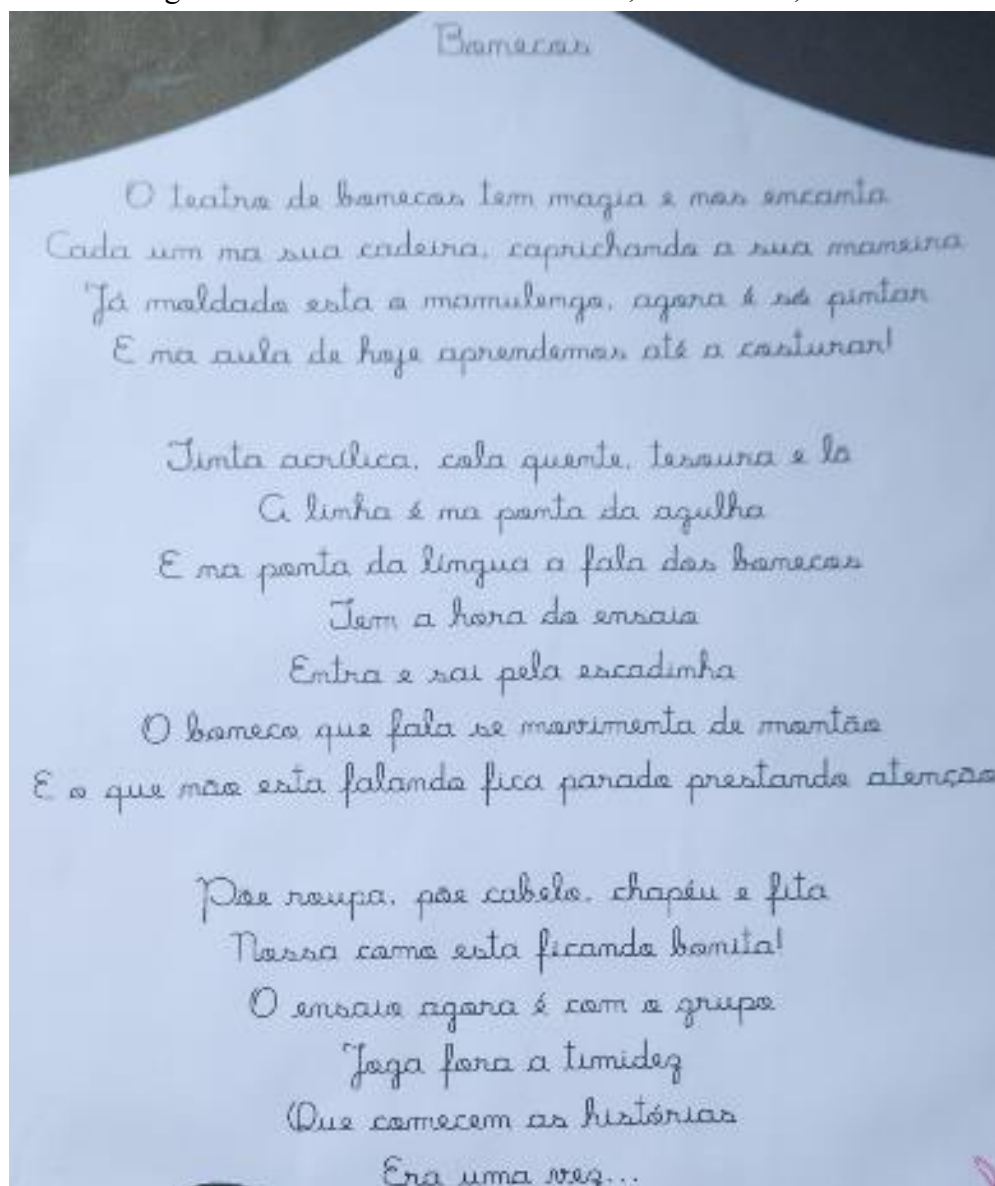 Bonecos
O teatro de bonecos tem magia e nos encanta
Cada um na sua cadeira, caprichando a sua maneira
Já moldado esta o mamulengo, agora é só pintar
E na aula de hoje aprendemos até a costurar!
Tinta acrílica, cola quente, tesoura e lã
A linha é na ponta da agulha
E na ponta da língua a fala dos bonecos
Tem a hora do ensaio
Entra e sai pela escadinha
O boneco que fala se movimenta de montão
E o que não esta falando fica parado prestando atenção
Põe roupa, põe cabelo, chapéu e fita
Nossa como esta ficando bonita!
O ensaio agora é com o grupo
Joga fora a timidez
Que comecem as histórias
Era uma vez...